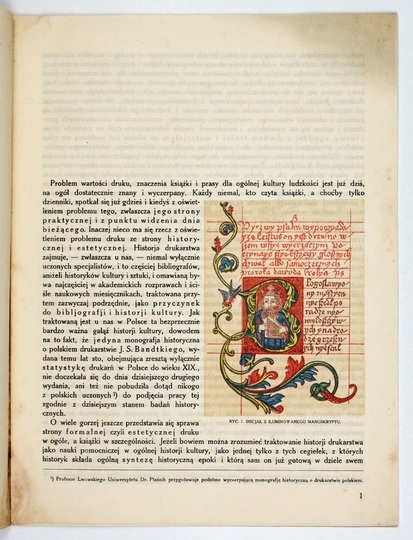 Problem wartości druku, znaczenia książki i prasy dla ogólnej kultury ludzkości jest już dziś,
na ogół dostatecznie znany i wyczerpany. Każdy niemal, kto czyta książki, a choćby tylko
dzienniki, spotkał się już gdzieś i kiedyś z oświet-
leniem problemu tego, zwłaszcza jego strony
praktycznej i z punktu widzenia dnia
bieżącego. Inaczej nieco ma się rzecz z oświe-
tleniem problemu druku ze strony history-
cznej i estetycznej. Historja drukarstwa
zajmuje, — zwłaszcza u nas, — niemal wyłącznie
uczonych specjalistów, i to częściej bibliografów,
aniżeli historyków kultury i sztuki, i omawianą by-
wa najczęściej w akademickich rozprawach i ści-
śle naukowych miesięcznikach, traktowana przy-
tem zazwyczaj podrzędnie, jako przyczynek
do bibljografji i historji kultury. Jak
traktowaną jest u nas w Polsce ta bezprzecznie
bardzo ważna gałąź historji kultury, dowodem
na to fakt, że jedyna monografja historyczna
o polskiem drukarstwie J. S. Bandtkiego, wy-
dana temu lat sto, obejmująca zresztą wyłącznie
statystykę drukarń w Polsce do wieku XIX.,
nie doczekała się do dnia dzisiejszego drugiego
wydania, ani też nie pobudziła dotąd nikogo
z polskich uczonych¹) do podjęcia pracy tej
zgodnie z dzisiejszym stanem badań history-
cznych.
O wiele gorzej jeszcze przedstawia się sprawa
strony formalnej czyli estetycznej druku
RYC. 1. INICJAŁ Z ILUMINOWANEGO MANUSKRYPTU.
w ogóle, a książki w szczególności. Jeżeli bowiem można zrozumieć traktowanie historji drukarstwa
jako nauki pomocniczej w ogólnej historji kultury, jako jednej tylko z tych cegiełek, z których
historyk składa ogólną syntezę historyczną epoki i którą sam on już gotową w dziele swem
¹) Profesor Lwowskiego Uniwersytetu Dr. Ptaśnik przygotowuje podobno wyczerpującą monografję historyczną o drukarstwie polskiem.
1